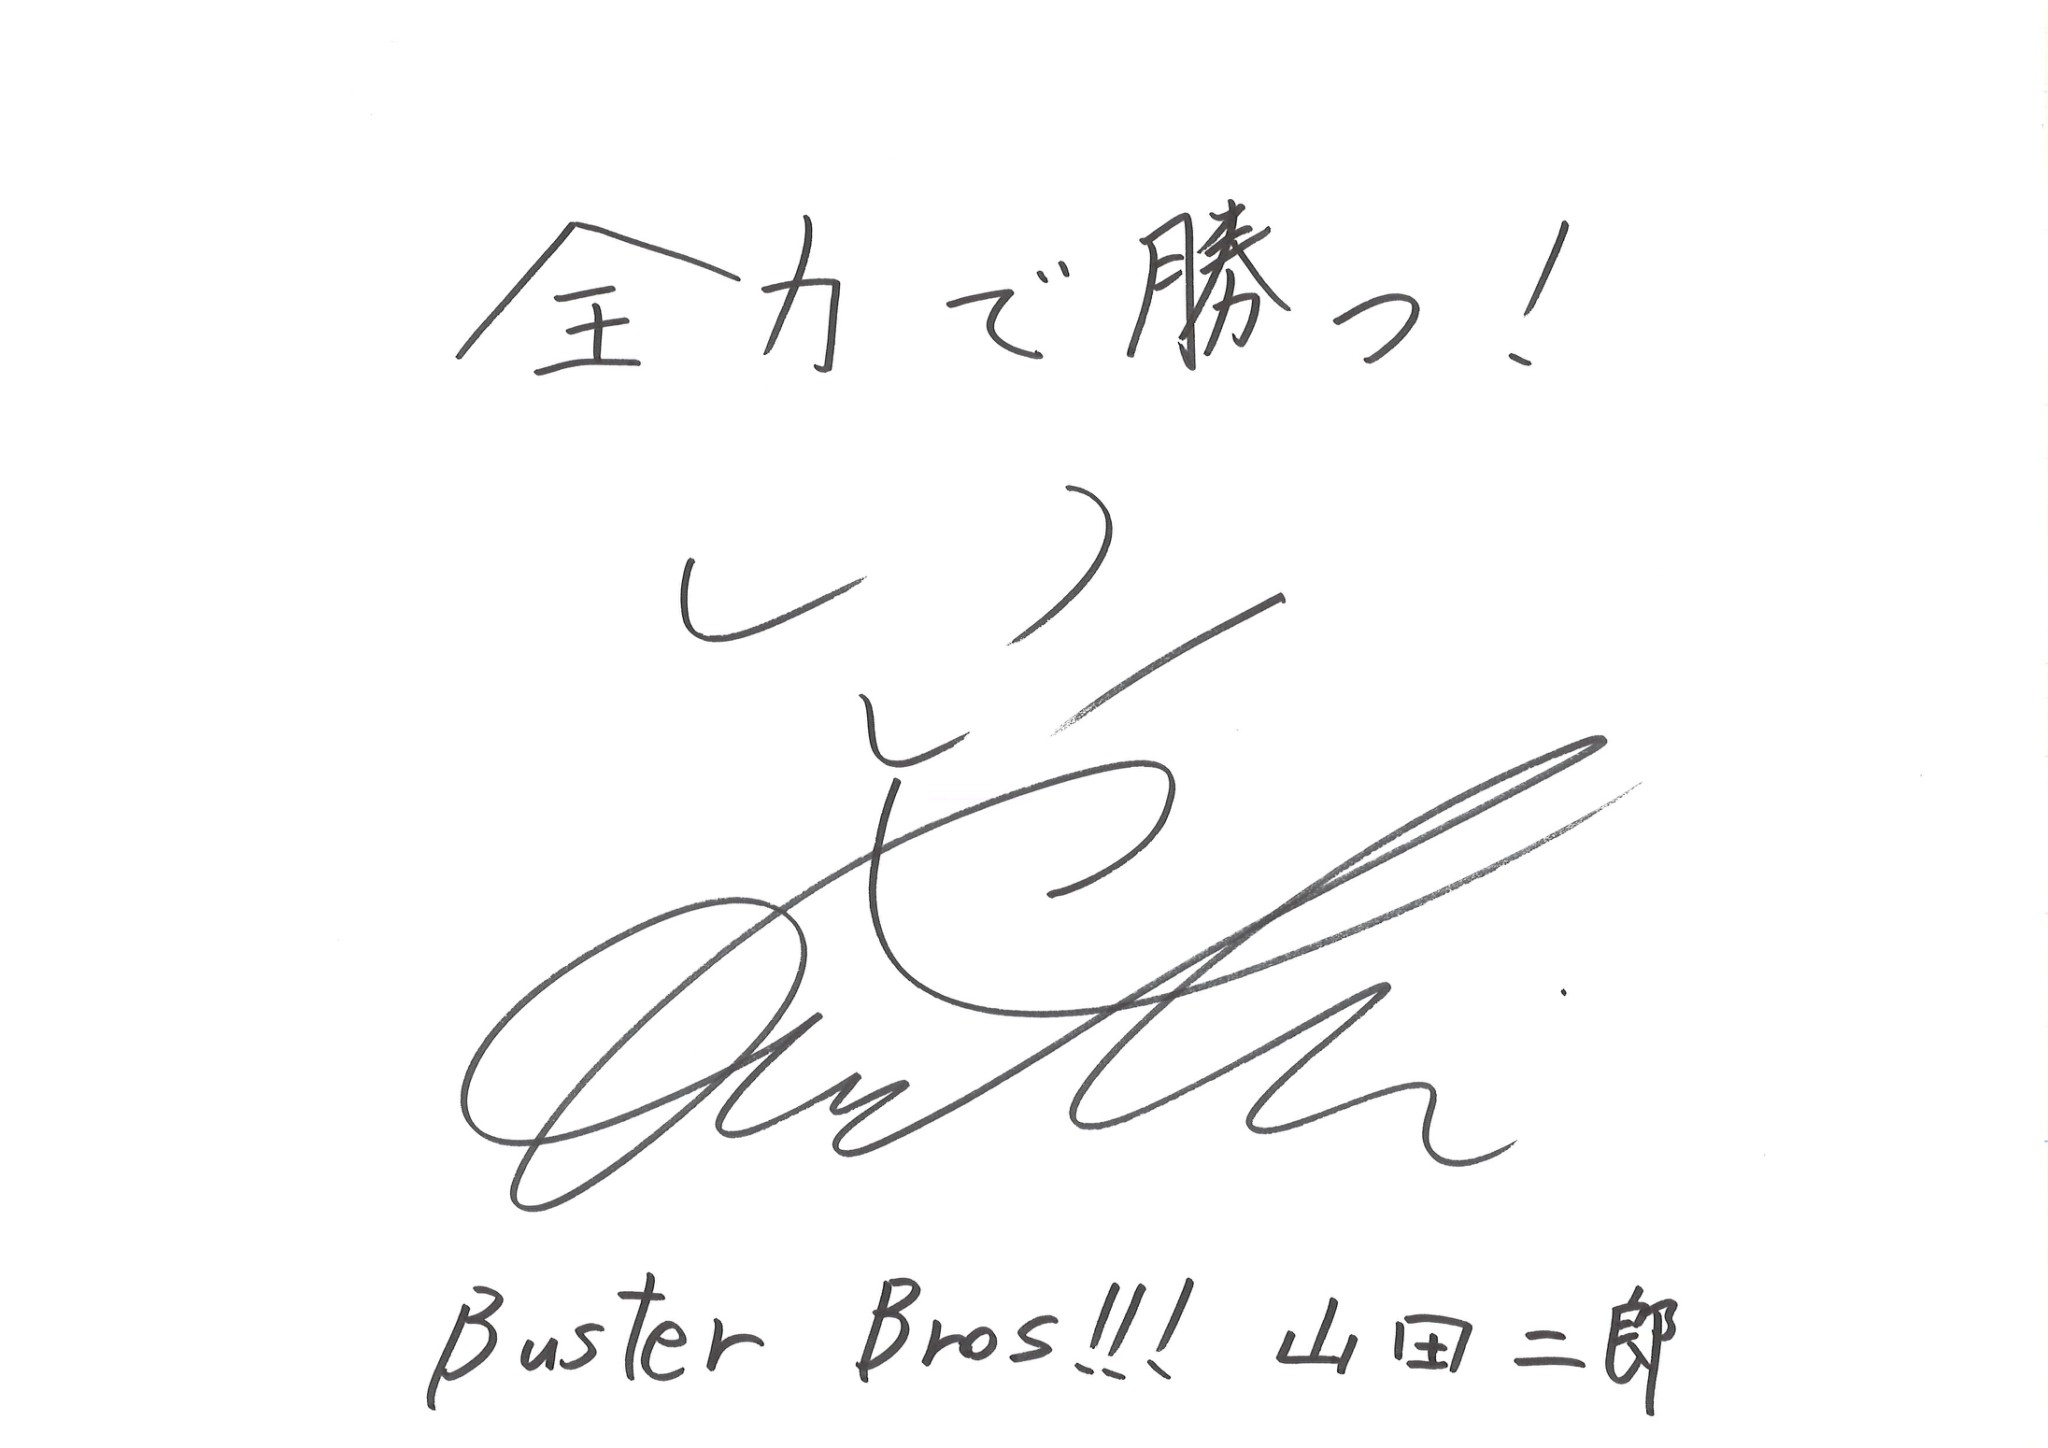 全力で勝つ!
Buster Bros!!! 山田二郎